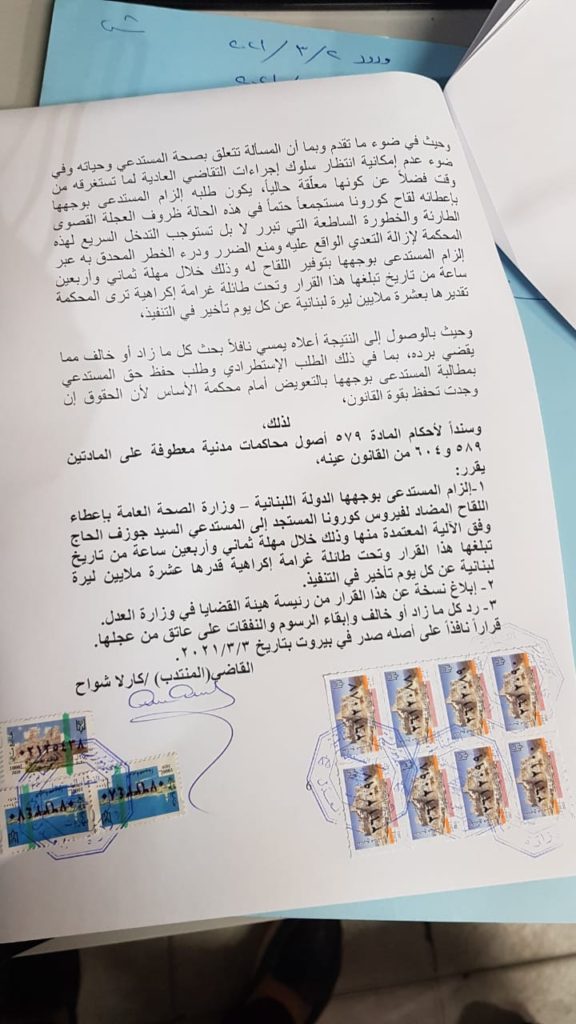 ورود ٢ / ٣ / ٢٠٢١
وحيث في ضوء ما تقدم وبما أن المسألة تتعلق بصحة المستدعي وحياته وفي
ضوء عدم إمكانية انتظار سلوك إجراءات التقاضي العادية لما تستغرقه من
وقت فضلاً عن كونها معلّقة حالياً، يكون طلبه إلزام المستدعى بوجهها
بإعطائه لقاح كورونا مستجمعاً حتماً في هذه الحالة ظروف العجلة القصوى
الطارئة والخطورة الساطعة التي تبرر لا بل تستوجب التدخل السريع لهذه
المحكمة لإزالة التعدي الواقع عليه ومنع الضرر ودرء الخطر المحدق به عبر
إلزام المستدعى بوجهها بتوفير اللقاح له وذلك خلال مهلة ثماني وأربعين
ساعة من تاريخ تبلغها هذا القرار وتحت طائلة غرامة إكراهية ترى المحكمة
تقديرها بعشرة ملايين ليرة لبنانية عن كل يوم تأخير في التنفيذ،
وحيث بالوصول إلى النتيجة أعلاه يمسي نافلاً بحث كل ما زاد أو خالف مما
يقضي برده، بما في ذلك الطلب الإستطرادي وطلب حفظ حق المستدعي
بمطالبة المستدعى بوجهها بالتعويض أمام محكمة الأساس لأن الحقوق إن
وجدت تحفظ بقوة القانون،
لذلك،
وسنداً لأحكام المادة ٥٧٩ أصول محاكمات مدنية معطوفة على المادتين
٥٨٩ و٦٠٤ من القانون عينه،
يقرر:
١-إلزام المستدعى بوجهها الدولة اللبنانية – وزارة الصحة العامة بإعطاء
اللقاح المضاد لفيروس كورونا المستجد إلى المستدعي السيد جوزف الحاج
وفق الآلية المعتمدة منها وذلك خلال مهلة ثماني وأربعين ساعة من تاريخ
تبلغها هذا القرار وتحت طائلة غرامة إكراهية قدرها عشرة ملايين ليرة
لبنانية عن كل يوم تأخير في التنفيذ.
٢- إبلاغ نسخة عن هذا القرار من رئيسة هيئة القضايا في وزارة العدل.
٣- رد كل ما زاد أو خالف وإبقاء الرسوم والنفقات على عاتق من عجلها.
قراراً نافذاً على أصله صدر في بيروت بتاريخ ٢٠٢١/٣/٣.
القاضي(المنتدب) /كارلا شواح